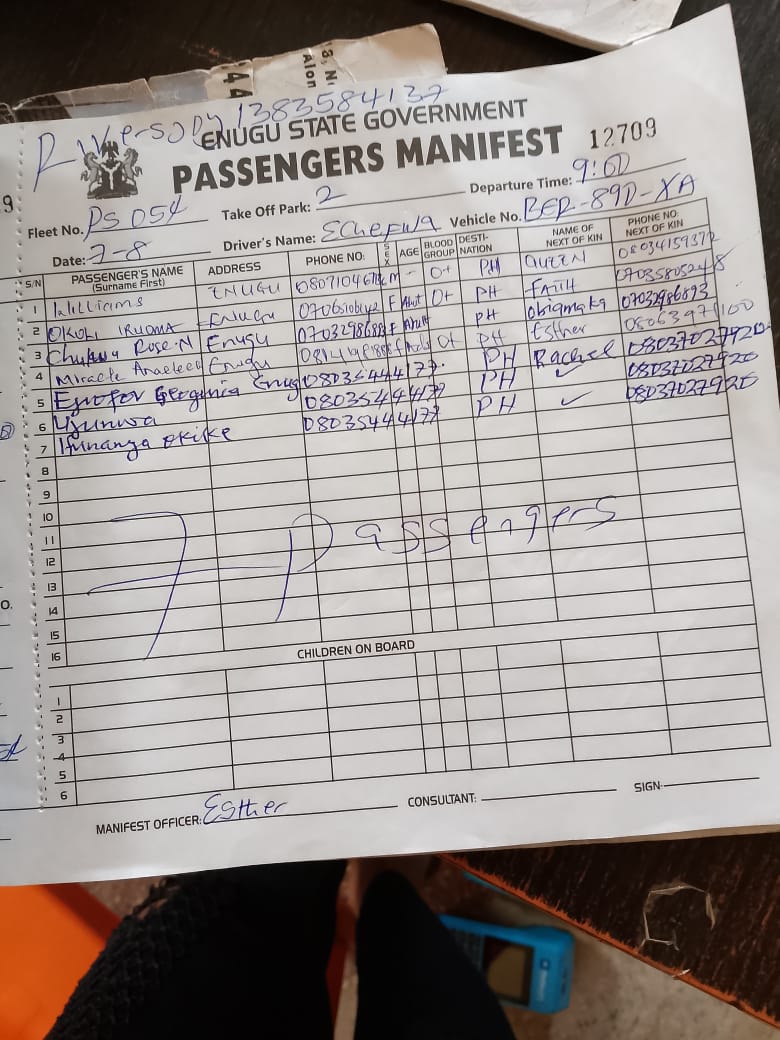 Riversody 1383584137
ENUGU STATE GOVERNMENT
PASSENGERS MANIFEST 12709
Fleet No. PS 054 Take Off Park: 2 Departure Time: 9:00
Date: 7-8 Driver's Name: Vehicle No. XA
S/N PASSENGER'S NAME (Surname First) ADDRESS PHONE NO: SEX AGE BLOOD GROUP DESTINATION NAME OF NEXT OF KIN PHONE NO: NEXT OF KIN
1 Williams ENUGU M - O+ PH QUEEN
2 OKOLI IRUOMA ENUGU F Adult O+ PH FAITH
3 Chukwu Rose.N Enugu F Adult PH Obiamaka
4 Miracle Enugu F O+ PH Esther
5 Georginia Enugu 08035444177 PH Rachel 08037027920
6 Ujunwa 08035444177 PH ✓ 08037027920
7 Ifunanya Okike 08035444177 PH ✓ 08037027920
8
9
10
11
12
13
14
15
16
7 Passengers
CHILDREN ON BOARD
1
2
3
4
5
6
MANIFEST OFFICER: Esther CONSULTANT: SIGN: